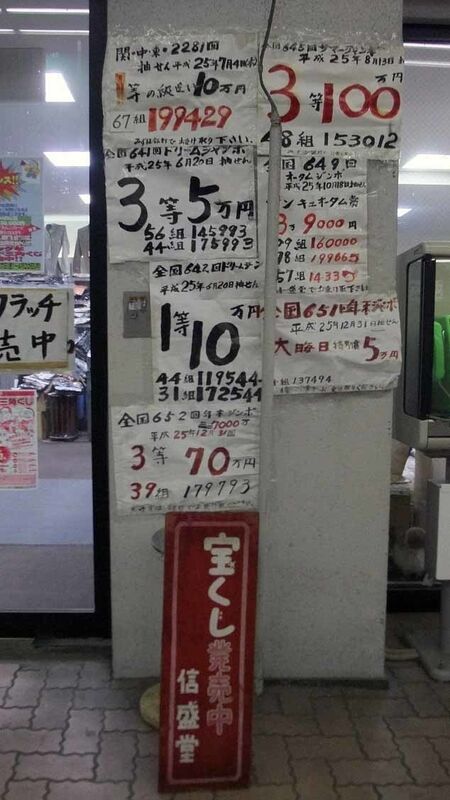 関・中・東・2281回
抽せん平成25年7月4日(木)
1等の組違い10万円
67組 199429
全国641回ドリームジャンボ
平成25年6月20日抽せん
3等5万円
56組 145993
44組 175993
全国642回ドリームテン
平成25年6月20日抽せん
1等10万円
44組 119544
31組 172544
全国652回年末ジャンボ
7000万
平成25年12月31日
3等 70万円
39組 179793
全国645回サマージャンボ
平成25年8月13日
3等100万円
48組 153012
全国649回
オータムジャンボ
平成25年10月18日抽せん
サンキュオータム祭
9000円
99組 160000
78組 199865
57組
全国651回年末ジャンボ
平成25年12月31日抽せん
大晦日特別賞5万円
組 137494
クラッチ
売中
宝くじ発売中
信盛堂